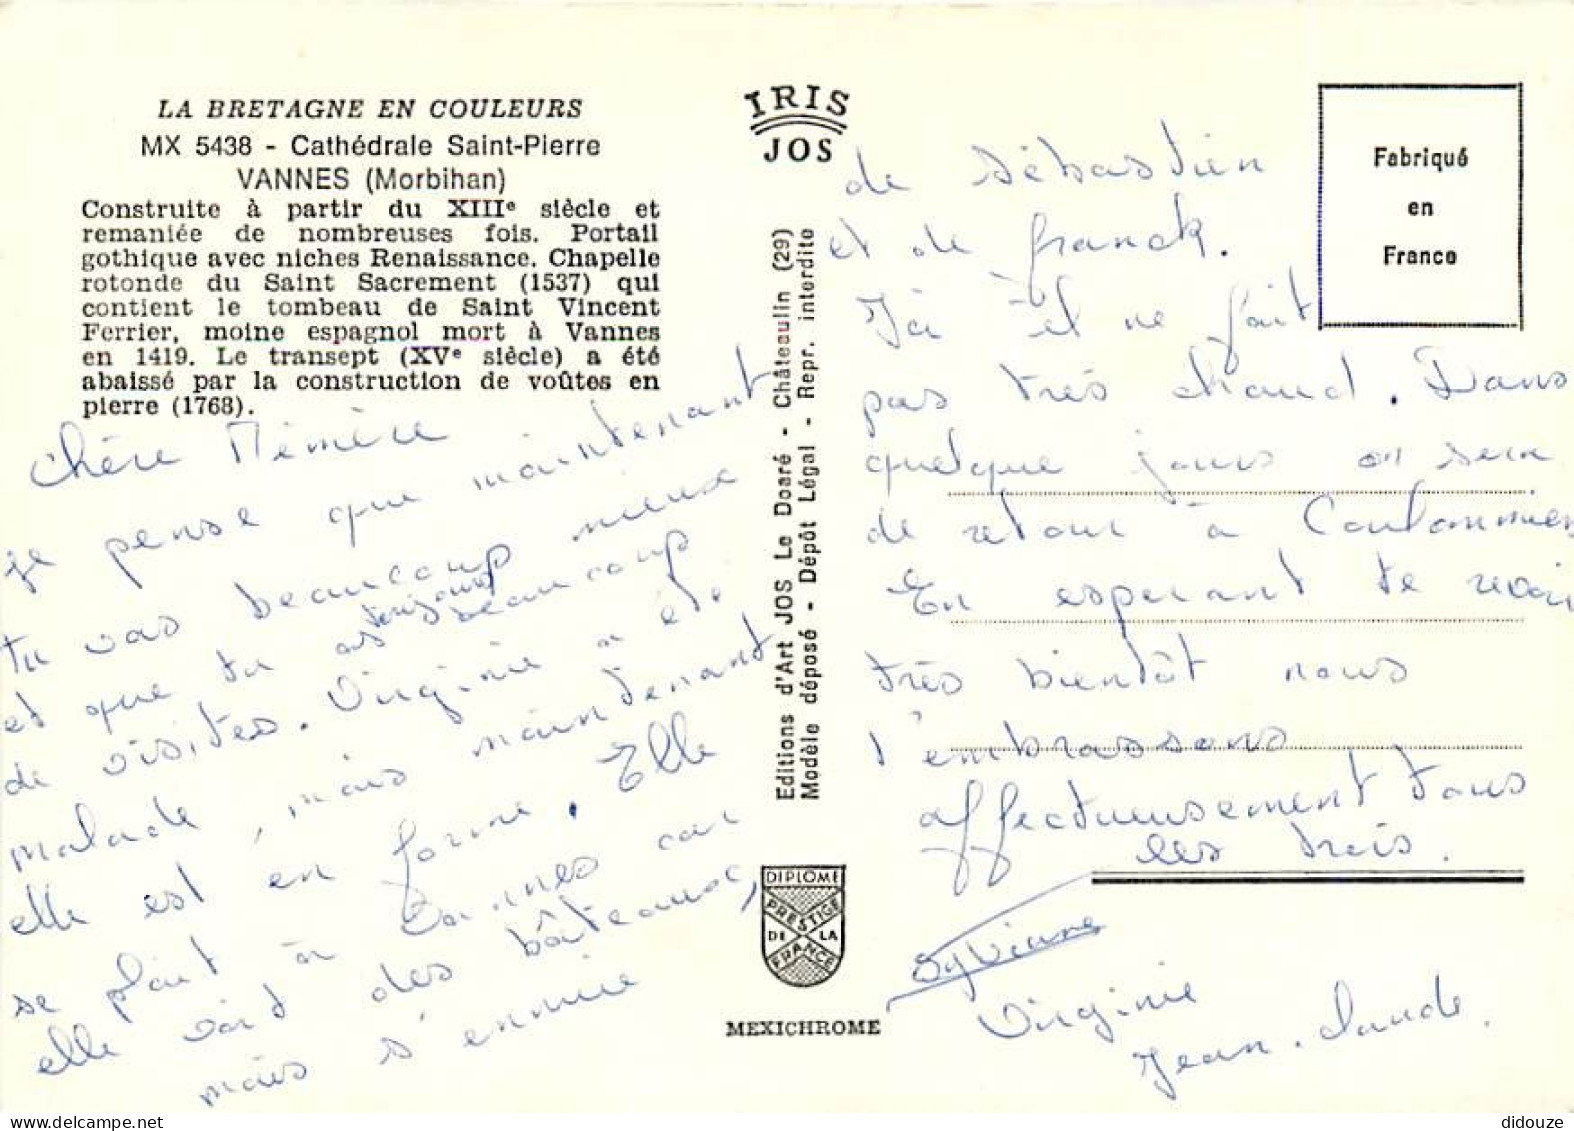 LA BRETAGNE EN COULEURS
MX 5438 - Cathédrale Saint-Pierre
VANNES (Morbihan)
Construite à partir du XIIIe siècle et
remaniée de nombreuses fois. Portail
gothique avec niches Renaissance. Chapelle
rotonde du Saint Sacrement (1537) qui
contient le tombeau de Saint Vincent
Ferrier, moine espagnol mort à Vannes
en 1419. Le transept (XVe siècle) a été
abaissé par la construction de voûtes en
pierre (1768).
Chère Mémère
je pense que maintenant
tu vas beaucoup mieux
et que tu as toujours beaucoup
de visites. Virginie a été
malade, mais maintenant
elle est en forme. Elle
se plait à Vannes car
elle voit des bâteaux,
mais s'ennuie
IRIS
JOS
Editions d'Art JOS Le Doaré - Châteaulin (29)
Modèle déposé - Dépôt Légal - Repr. interdite
DIPLOME
PRESTIGE
DE LA
FRANCE
MEXICHROME
Fabriqué
en
France
de Sébastien
et de franck.
Ici il ne fait
pas très chaud. Dans
quelque jours on sera
de retour à Coulommiers
En esperant te revoir
très bientôt nous
t'embrassons
affectueusement tous
les trois.
Sylviane
Virginie
Jean-claude.
didouze